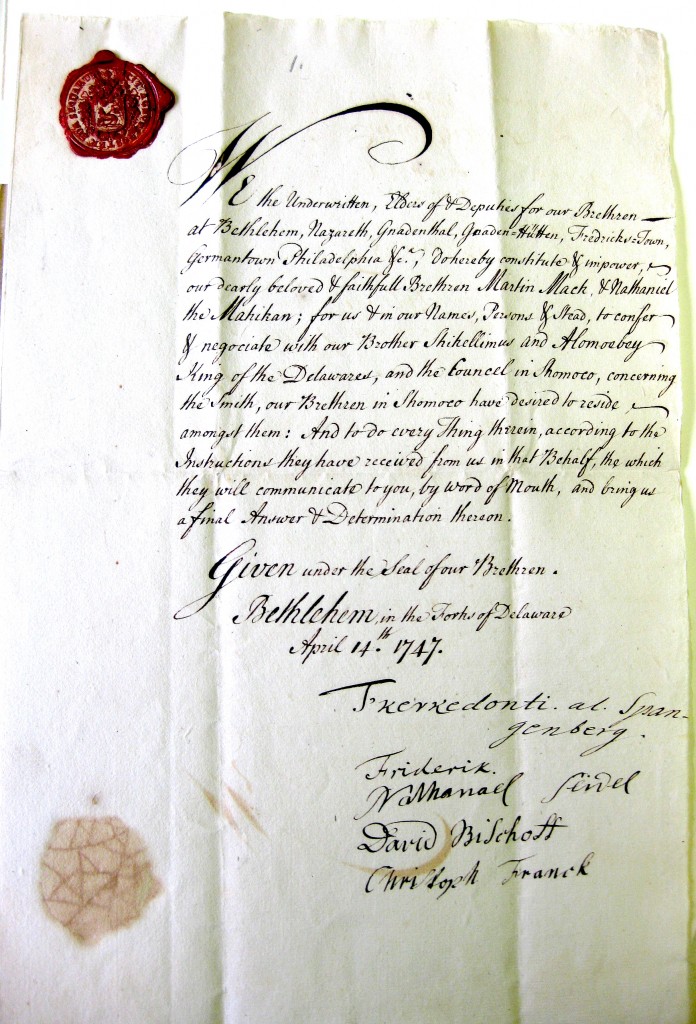 1.
WE the Underwritten, Elders of & Deputies for our Brethren
at Bethlehem, Nazareth, Gnadenthal, Gnaden=Hütten, Fredricks=Town,
Germantown Philadelphia &c., do hereby constitute & impower,
our dearly beloved & faithfull Brethren Martin Mack, & Nathaniel
the Mahikan; for us & in our Names, Persons & Stead, to confer
& negociate with our Brother Shikellimus and Alomoebey
King of the Delawares, and the Councel in Shomoco, concerning
the Smith, our Brethren in Shomoco have desired to reside
amongst them: And to do every Thing therein, according to the
Instructions they have received from us in that Behalf, the which
they will communicate to you, by Word of Mouth, and bring us
a final Answer & Determination thereon.
Given under the Seal of our Brethren.
Bethlehem, in the Forks of Delaware
April 14.th 1747.
Tkerkedonti. al. Span-
genberg.
Friderik.
Nathanael Seidel
David Bischoff
Christoph Franck